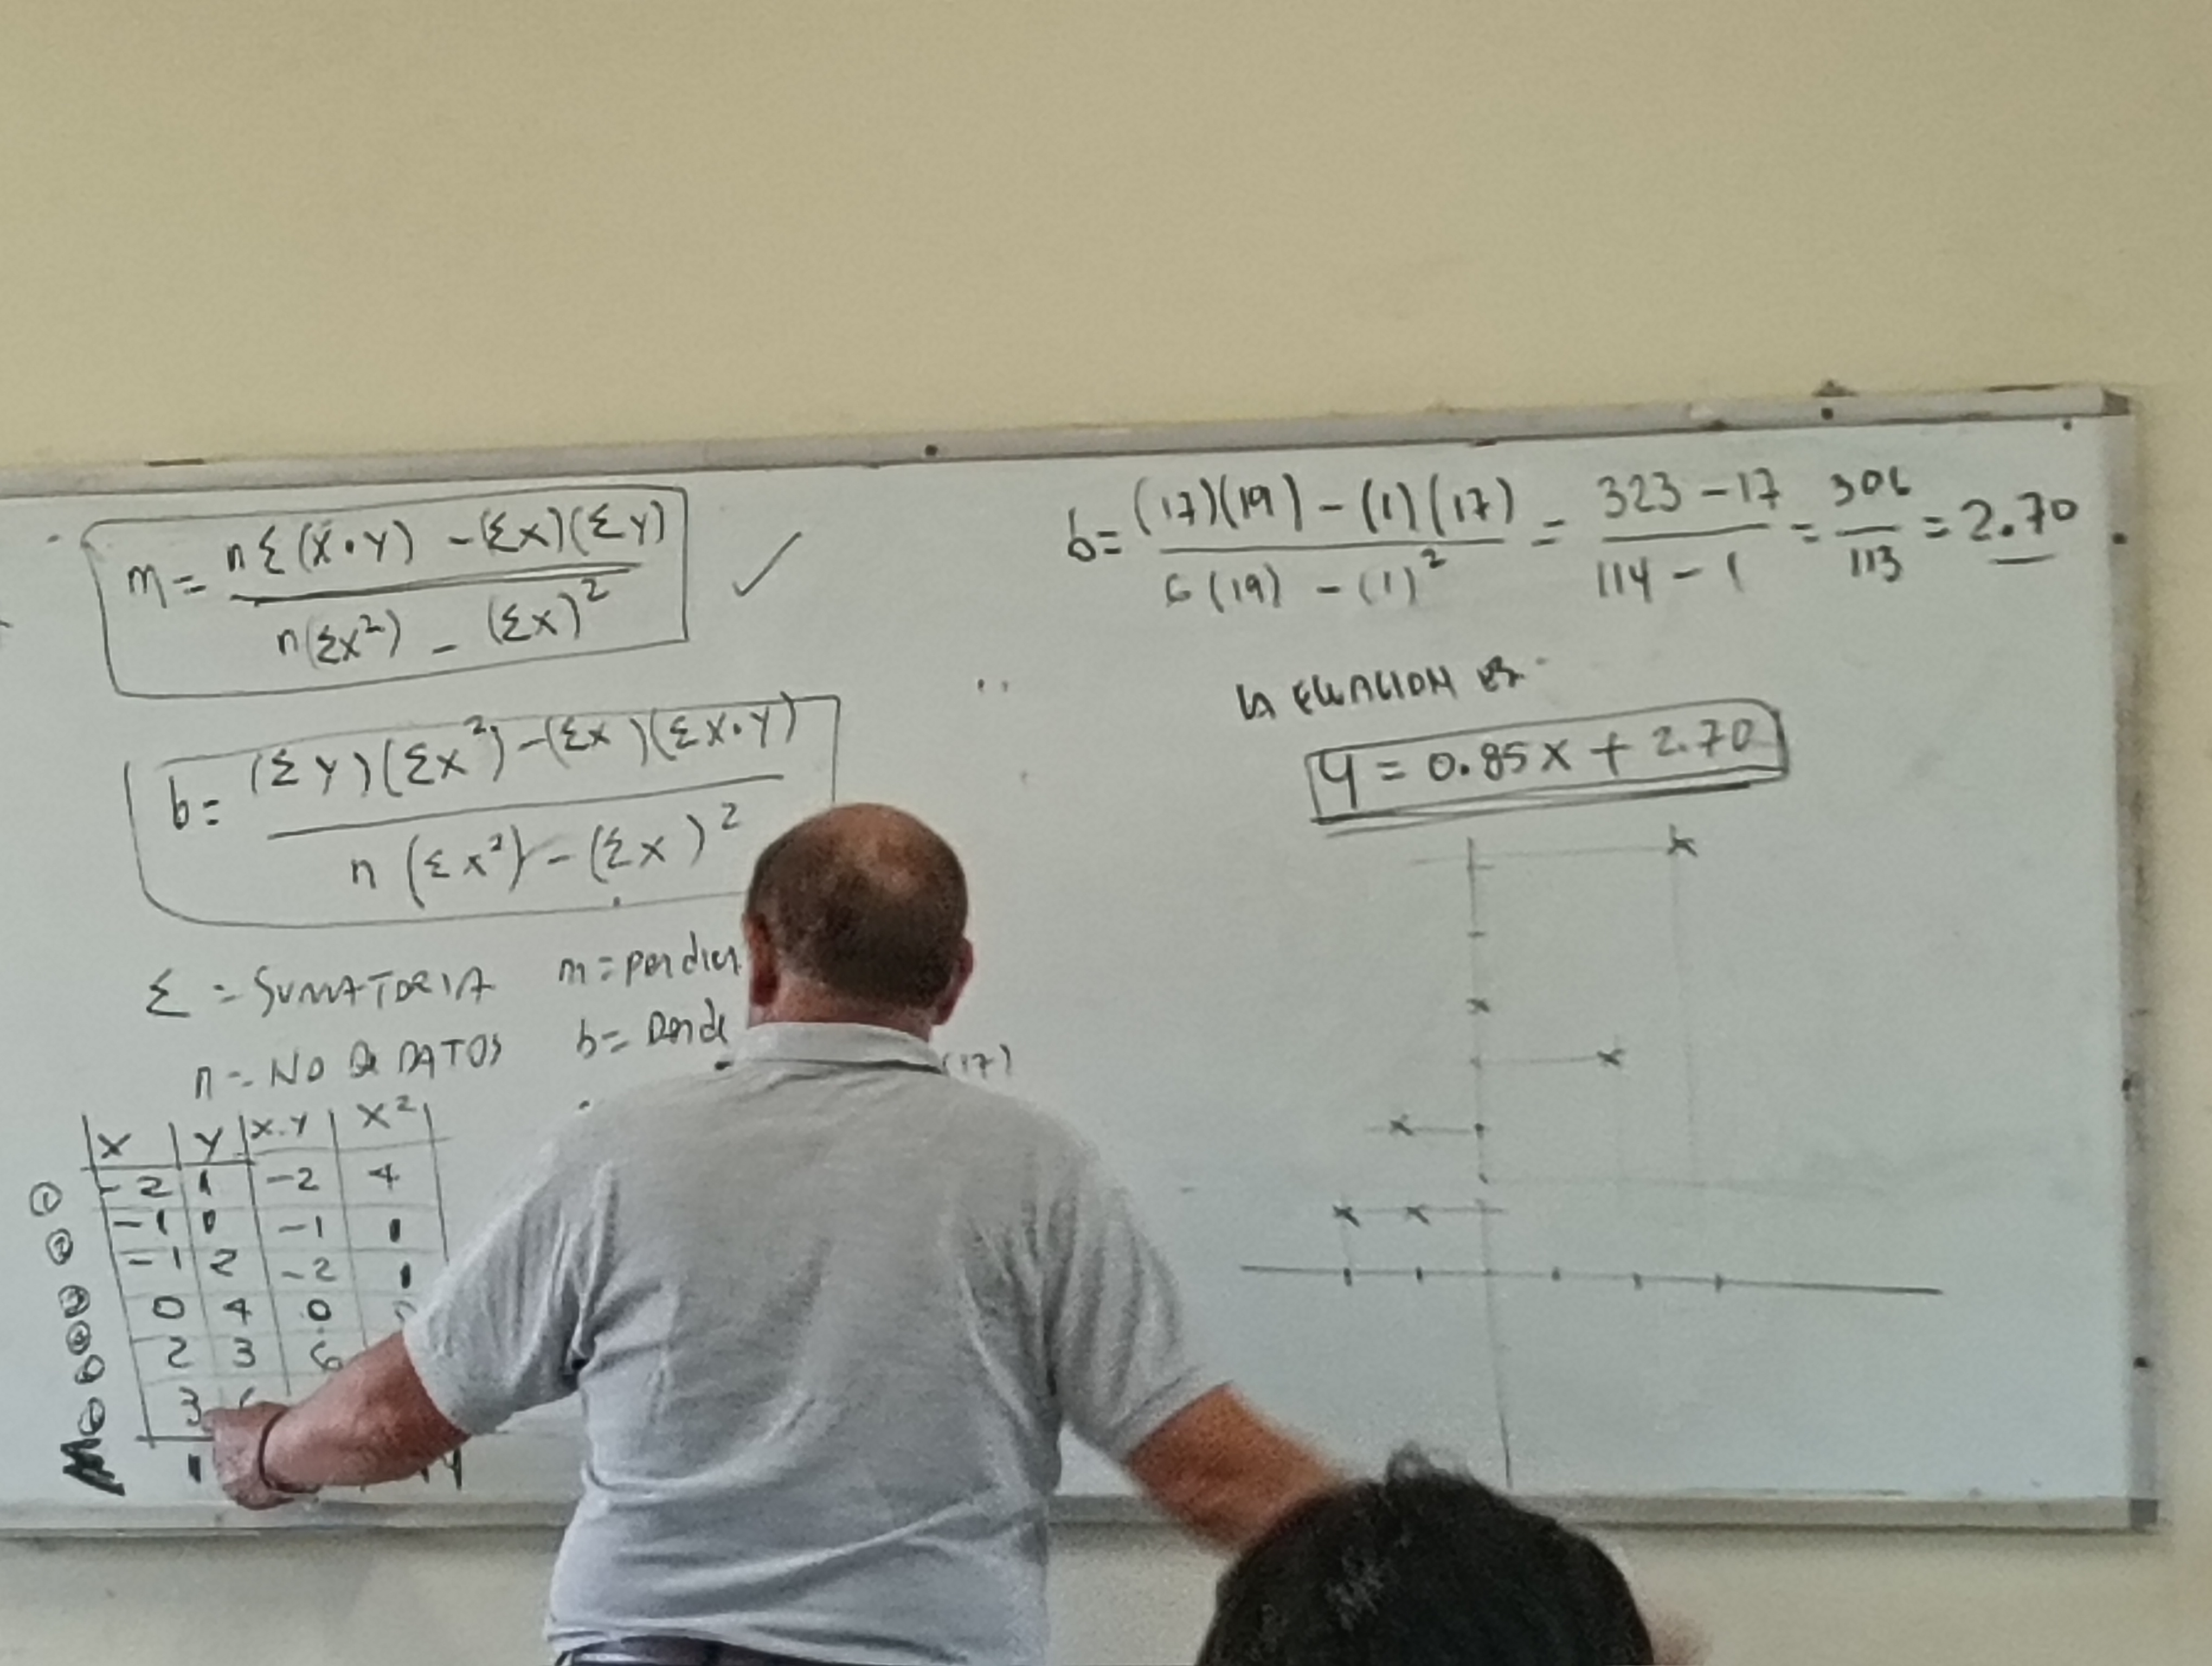 m = n Σ (X·Y) - (Σx)(Σy) / n(Σx²) - (Σx)²
b = (Σy)(Σx²) - (Σx)(Σx·y) / n (Σx²) - (Σx)²
Σ = SUMATORIA
n = NO DE DATOS
b = Donde
(17)
X Y X.Y X²
-2 1 -2 4
-1 -1 1
-1 2 -2 1
0 4 0
2 3 6
3
b = (17)(19) - (1)(17) / 6(19) - (1)² = 323 - 17 / 114 - 1 = 306 / 113 = 2.70
LA ECUACION ES
y = 0.85x + 2.70